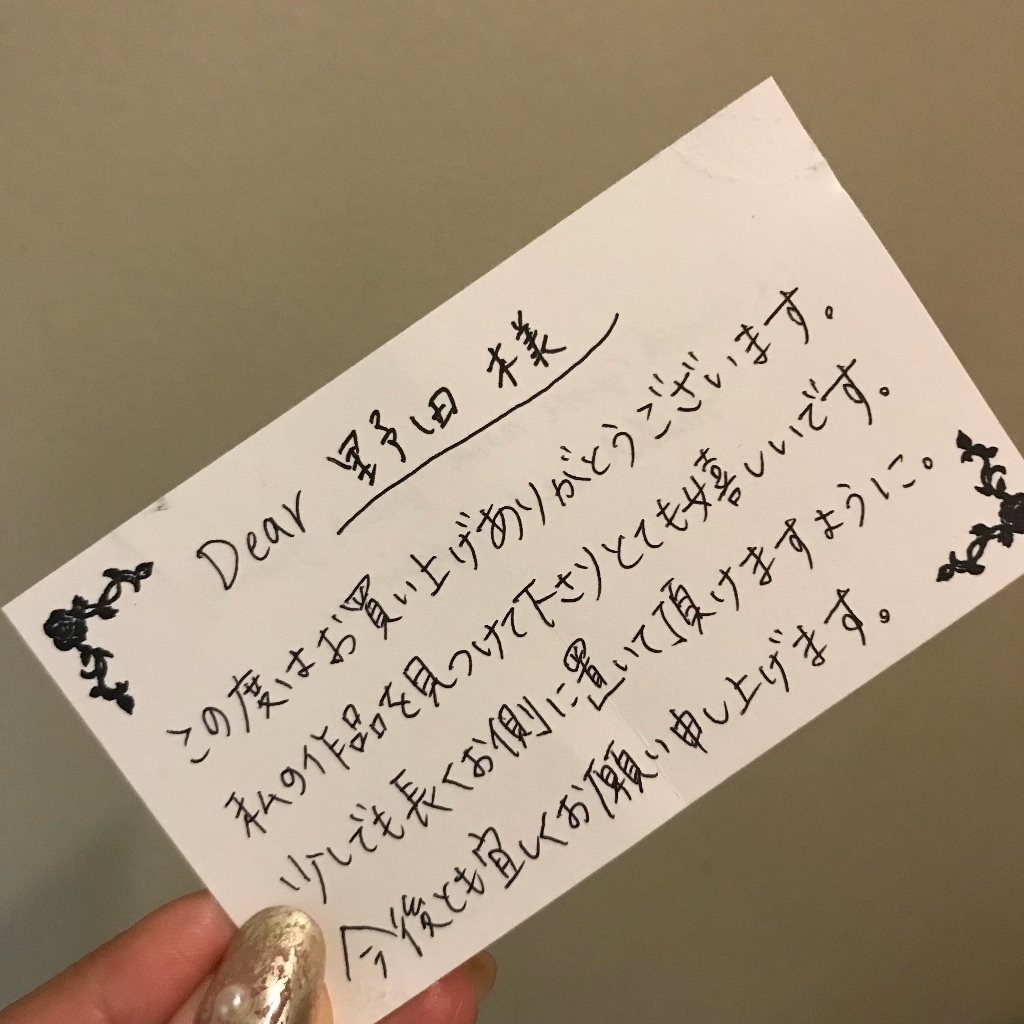 Dear 野田 様
この度はお買い上げありがとうございます。
私の作品を見つけて下さりとても嬉しいです。
少しでも長くお側に置いて頂けますように。
今後とも宜しくお願い申し上げます。